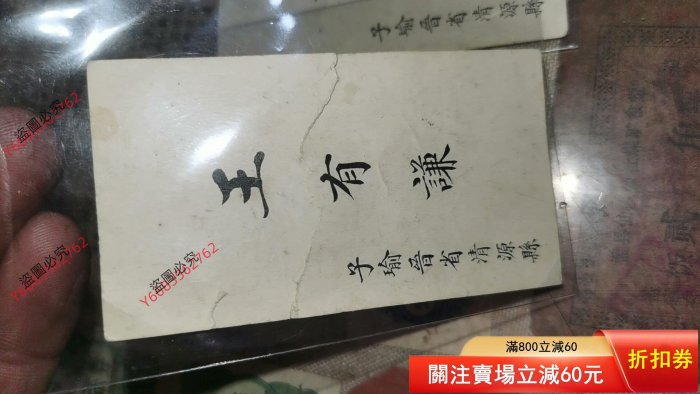 子瑜晉省清源縣
王有謙
子瑜晉省清源縣
盜圖必究
Y6005562762
盜圖必究
Y6005562762
盜圖必究
Y6005562762
滿800立減60
關注賣場立減60元
折扣券